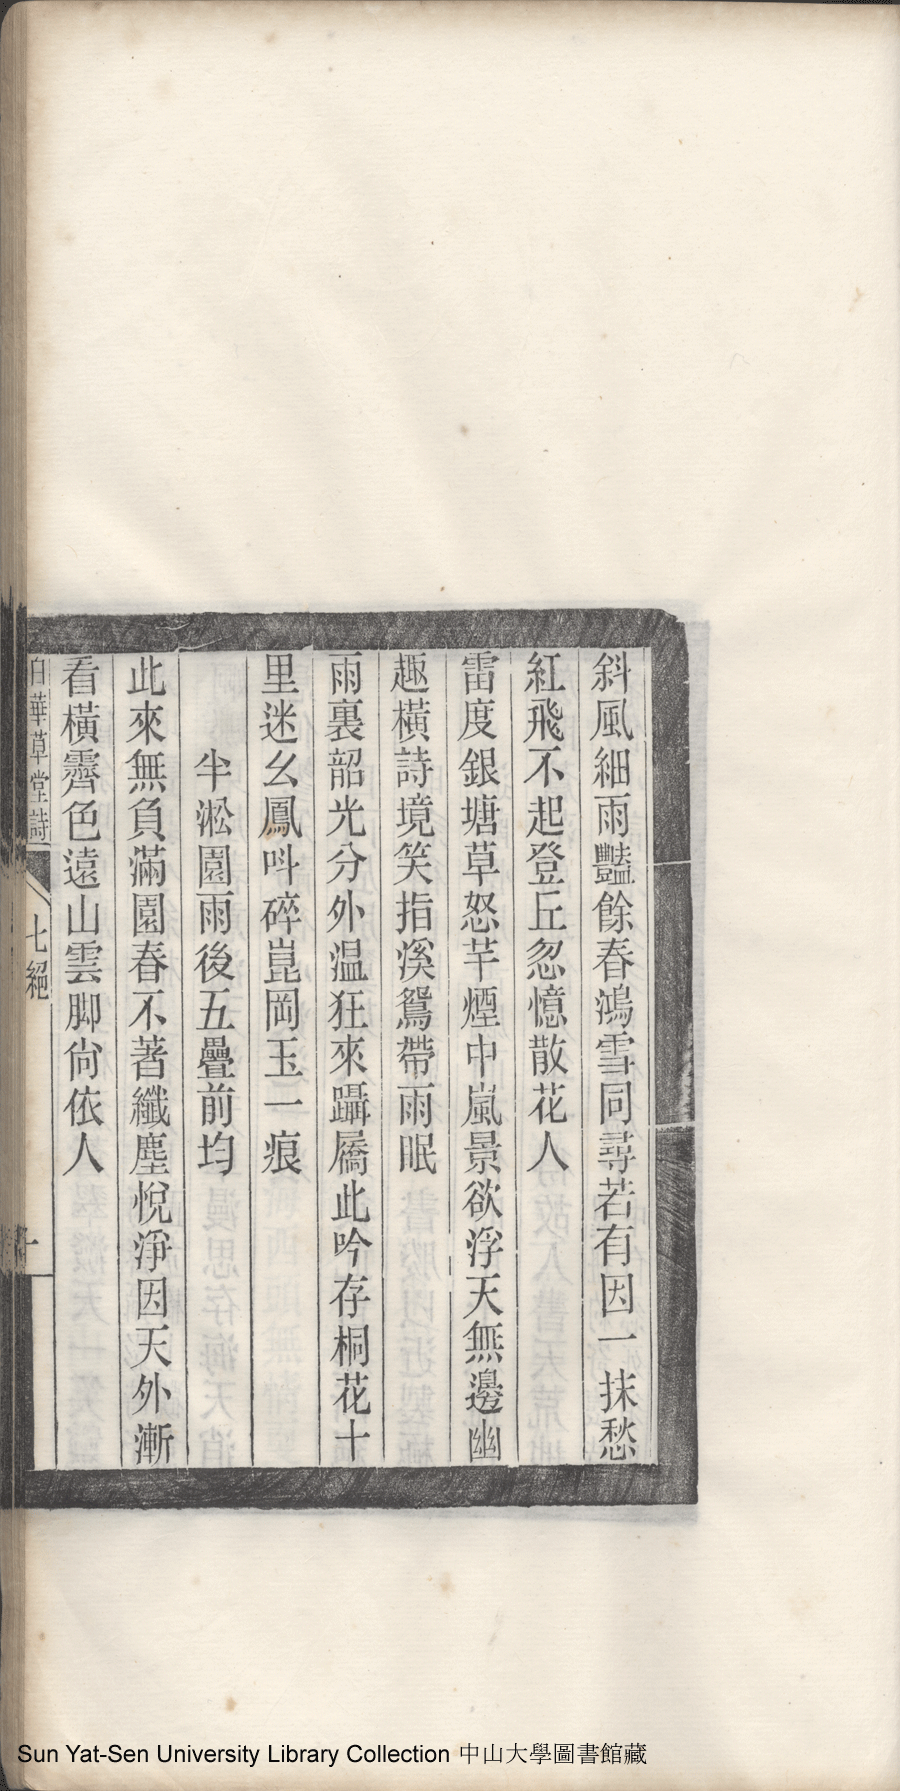 斜風細雨豔餘春鴻雪同尋若有因一抹愁
紅飛不起登丘忽憶散花人
雷度銀塘草怒芊煙中嵐景欲浮天無邊幽
趣橫詩境笑指溪鴛帶雨眠
雨裏韶光分外温狂來躡屩此吟存桐花十
里迷幺鳳呌碎崑岡玉一痕
半淞園雨後五疊前均
此來無負滿園春不著纖塵悅淨因天外漸
看橫霽色遠山雲脚尙依人
白華草堂詩
七絕
Sun Yat-Sen University Library Collection 中山大學圖書館藏